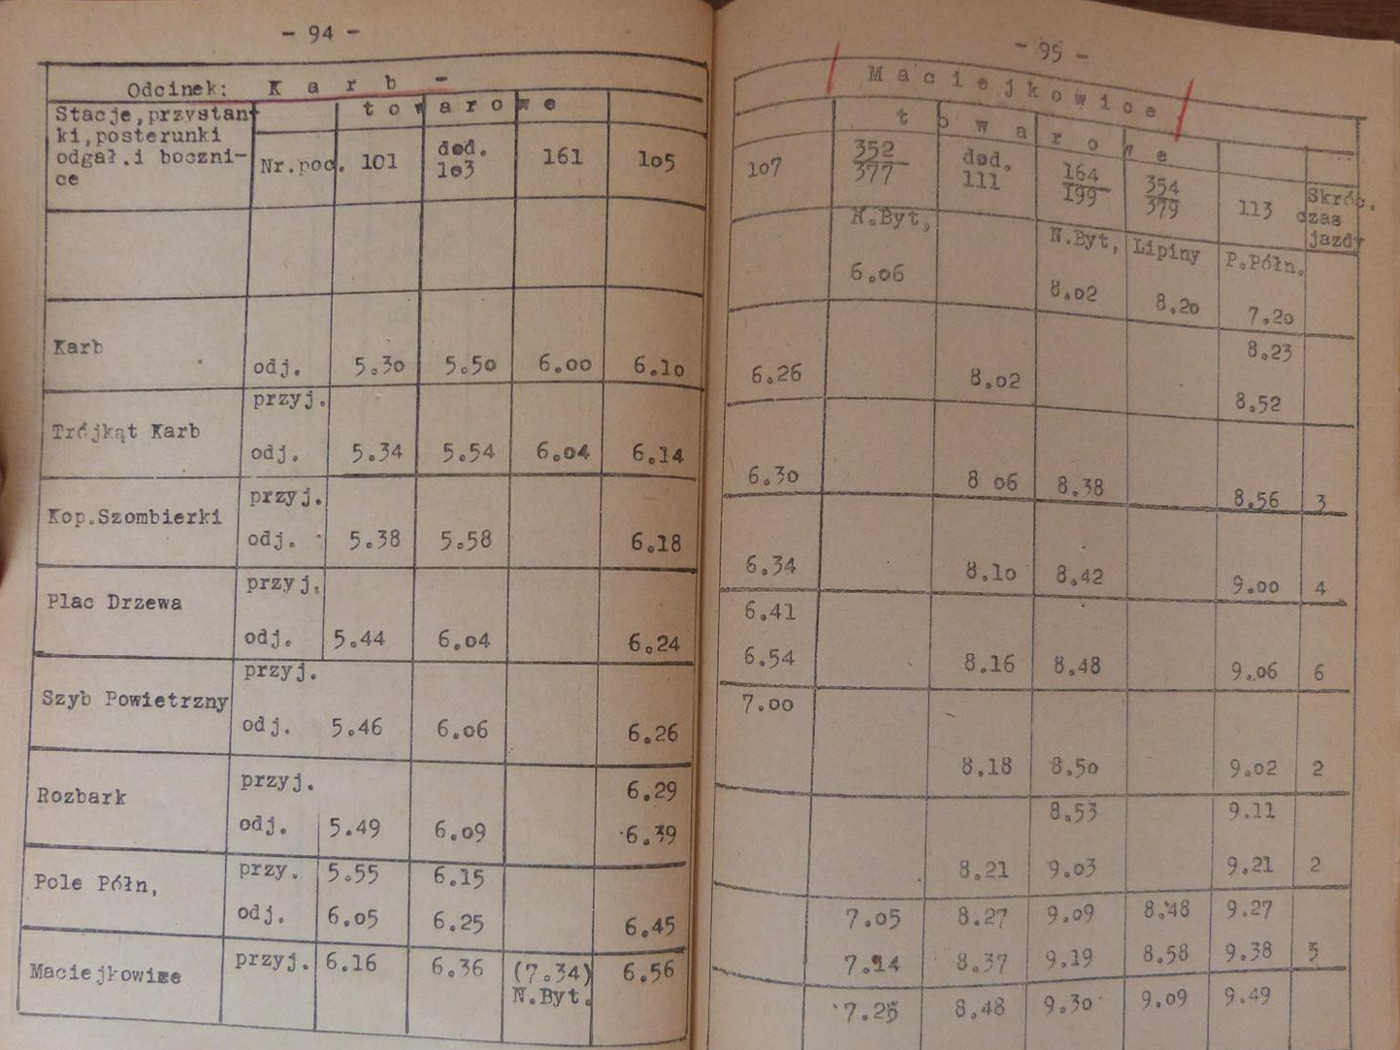 - 94 -
Odcinek: K a r b -
Stacje,przystan-
ki,posterunki
odgał.i boczni-
ce
t o w a r o w e
Nr.poc. 101 dod. 103 161 105
Karb odj. 5.30 5.50 6.00 6.10
przyj.
Trójkąt Karb
odj. 5.34 5.54 6.04 6.14
przyj.
Kop.Szombierki
odj. 5.38 5.58 6.18
przyj.
Plac Drzewa
odj. 5.44 6.04 6.24
przyj.
Szyb Powietrzny
odj. 5.46 6.06 6.26
przyj. 6.29
Rozbark
odj. 5.49 6.09 6.39
przy. 5.55 6.15
Pole Półn,
odj. 6.05 6.25 6.45
Maciejkowice przyj. 6.16 6.36 (7.34) 6.56
N.Byt.
- 95 -
M a c i e j k o w i c e
t o w a r o w e
107 352/377 dod. 111 164/199 354/379 113 Skróc.
czas
jazdy
N.Byt, N.Byt, Lipiny P.Półn.
6.06 8.02 8.20 7.20
8.23
6.26 8.02 8.52
6.30 8 06 8.38 8.56 3
6.34 8.10 8.42 9.00 4
6.41
6.54 8.16 8.48 9.06 6
7.00
8.18 8.50 9.02 2
8.53 9.11
8.21 9.03 9.21 2
7.05 8.27 9.09 8.48 9.27
7.14 8.37 9.19 8.58 9.38 5
7.25 8.48 9.30 9.09 9.49